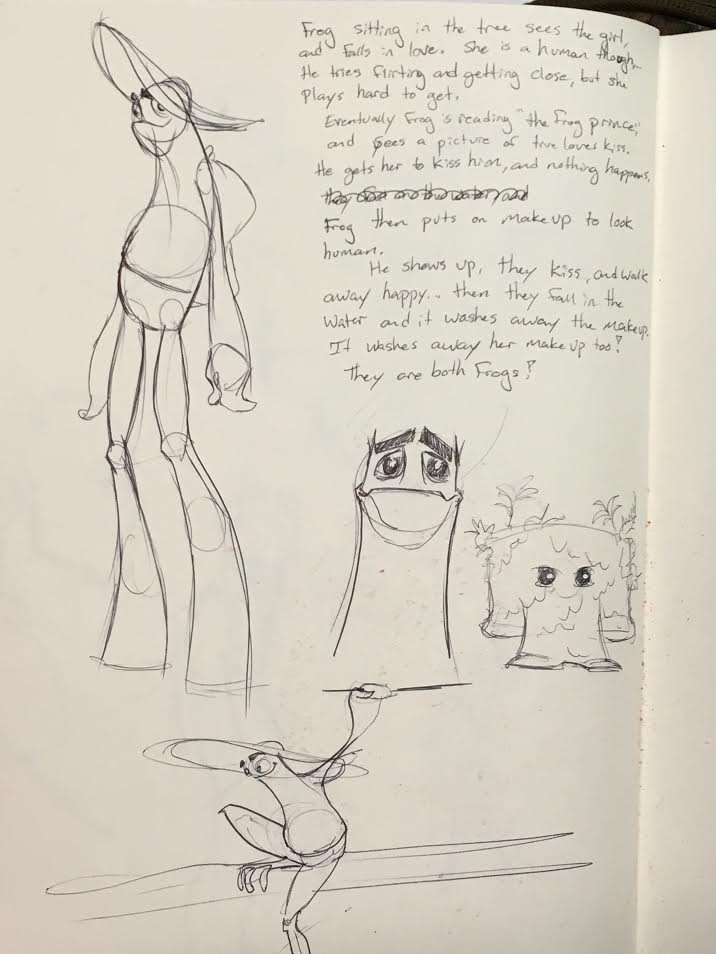 Frog sitting in the tree sees the girl,
and falls in love. She is a human though.
He tries flirting and getting close, but she
plays hard to get.
Eventually Frog is reading "the frog prince,"
and sees a picture of true loves kiss.
He gets her to kiss him, and nothing happens.
Frog then puts on makeup to look
human.
He shows up, they kiss, and walk
away happy... then they fall in the
water and it washes away the makeup.
It washes away her makeup too!
They are both Frogs!